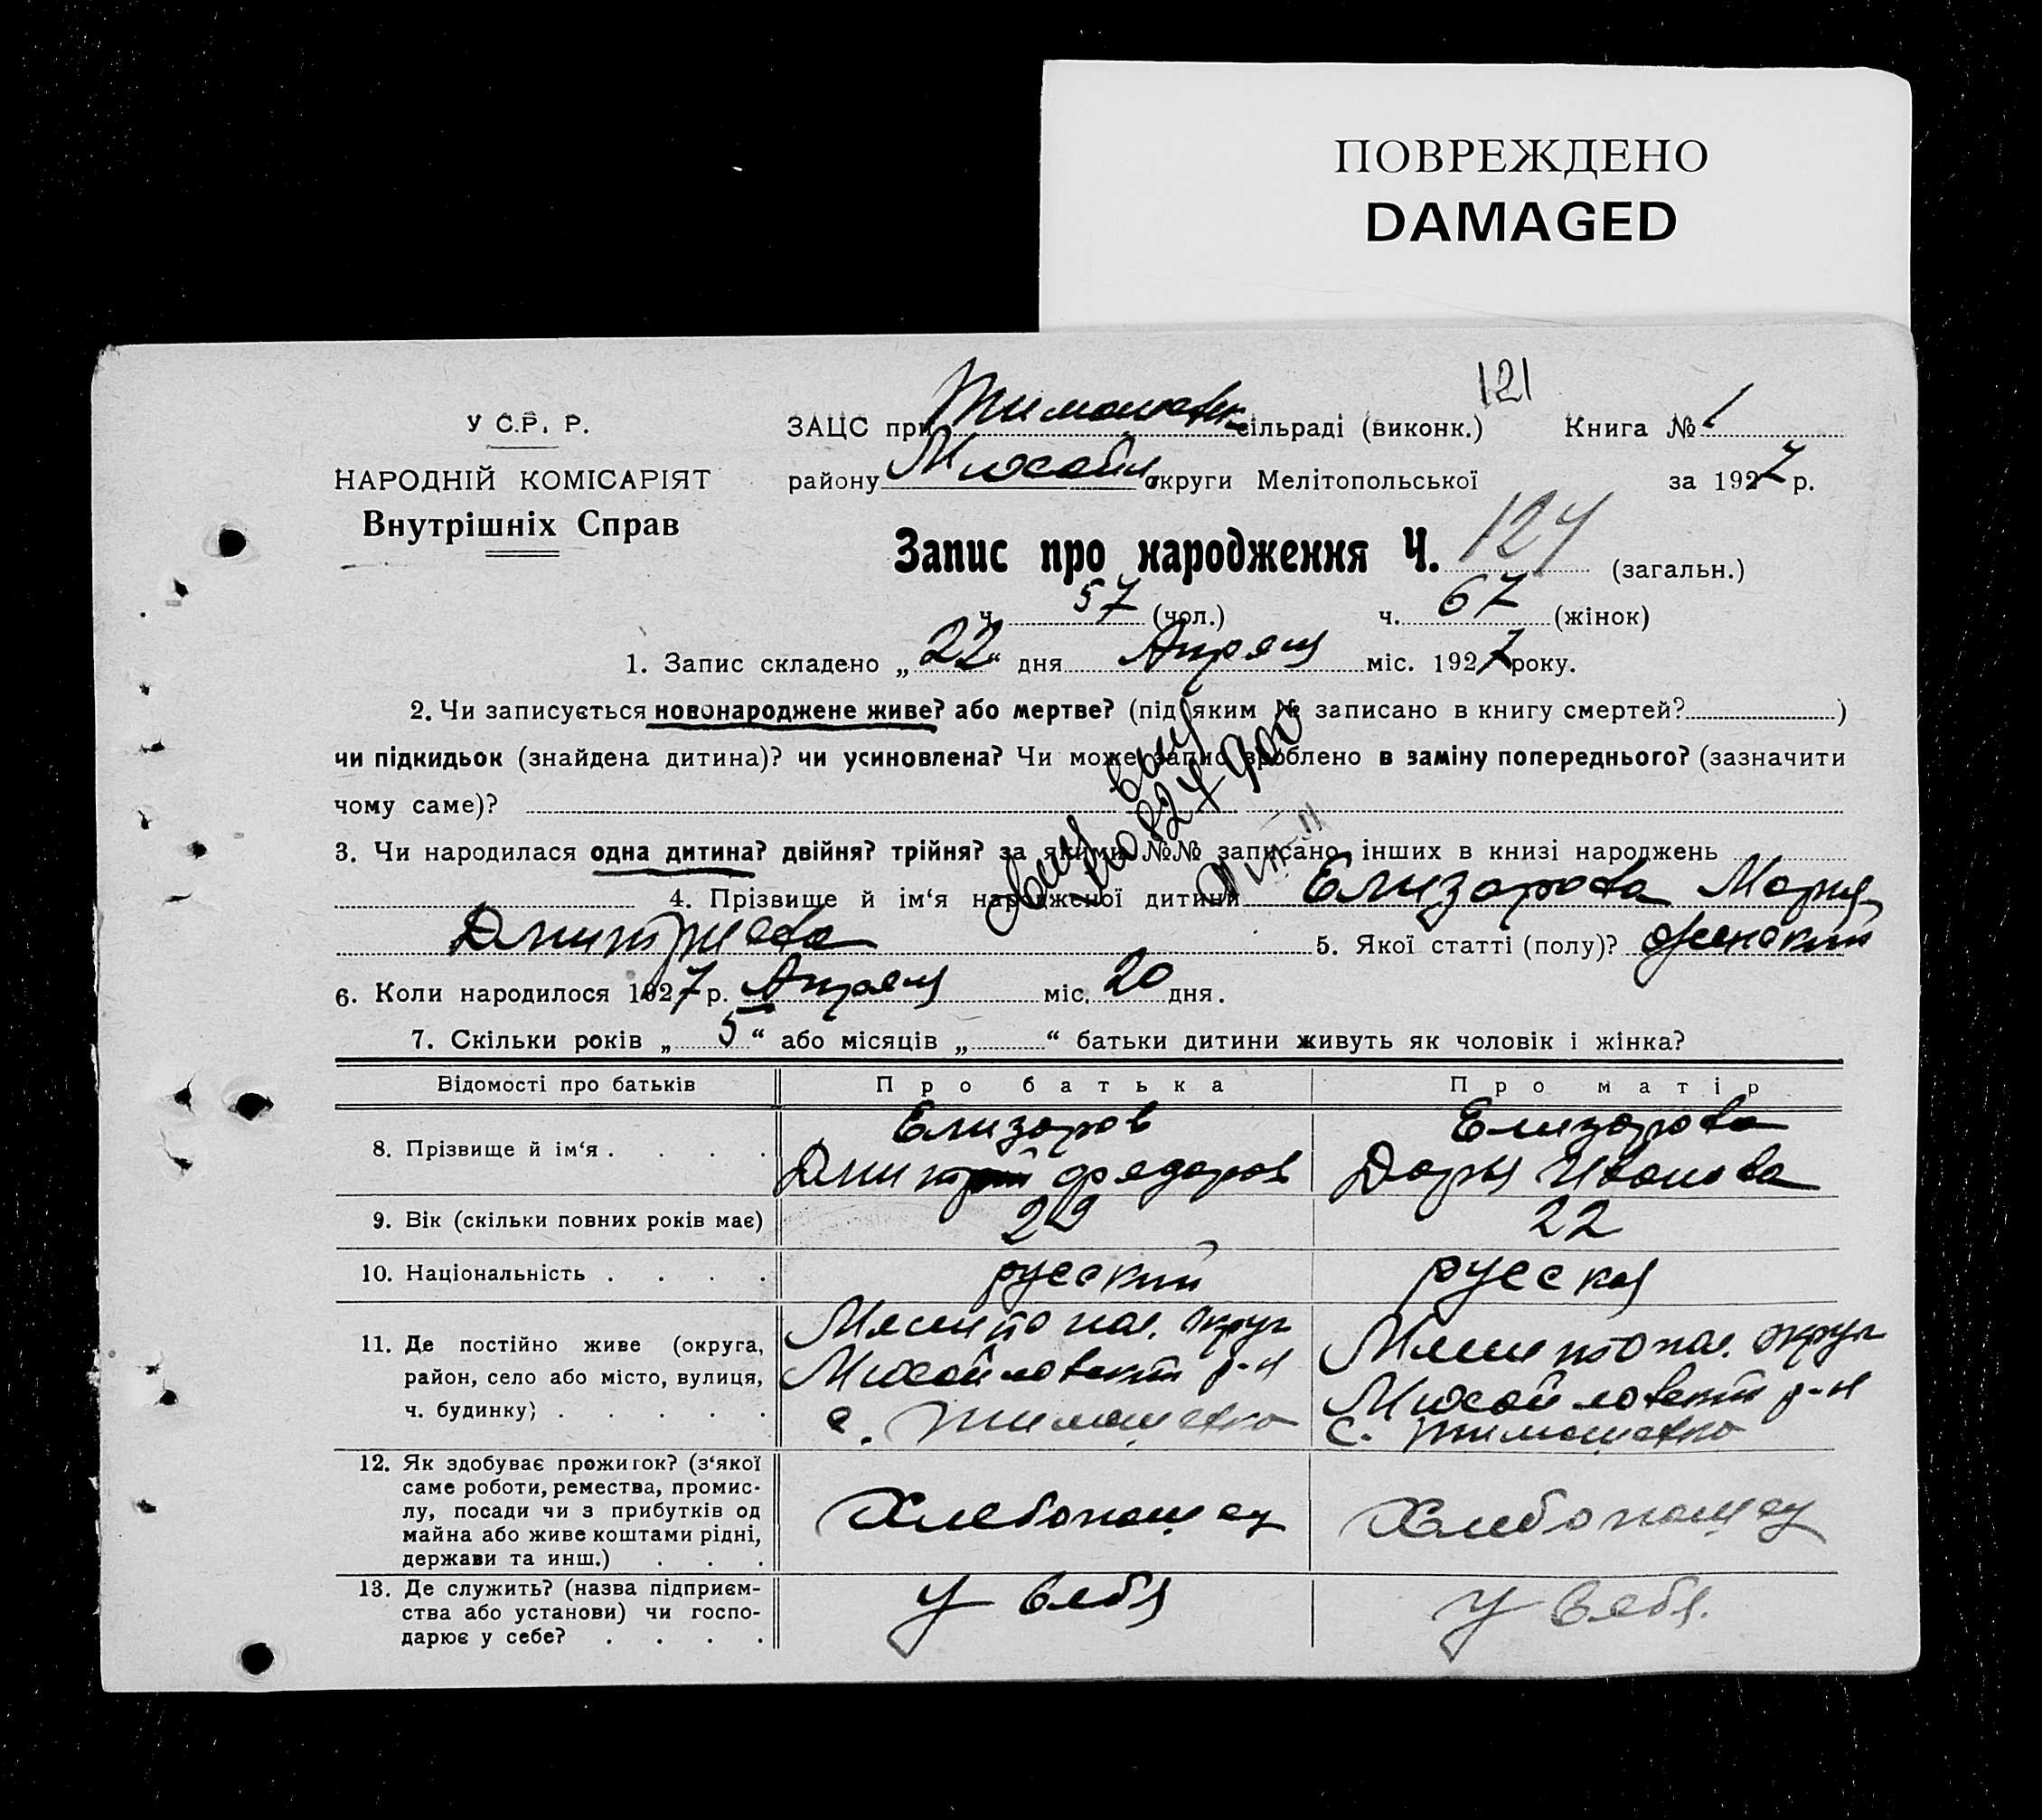 ПОВРЕЖДЕНО
DAMAGED
121
У С.Р. Р.
НАРОДНІЙ КОМІСАРІЯТ
Внутрішніх Справ
ЗАЦС при Тимошевк. сільраді (виконк.) Книга № 1
району Михайл округи Мелітопольської за 1927 р.
Запис про народження Ч. 124 (загальн.)
ч. 57 (чол.) ч. 67 (жінок)
1. Запис складено „22“ дня Апреля міс. 1927 року.
2. Чи записується новонароджене живе? або мертве? (під яким № записано в книгу смертей? )
чи підкидьок (знайдена дитина)? чи усиновлена? Чи може запис зроблено в заміну попереднього? (зазначити
чому саме)?
3. Чи народилася одна дитина? двійня? трійня? за якими №№ записано інших в книзі народжень
4. Прізвище й ім‘я народженої дитини Елизарова Мария
Дмитриева 5. Якої статті (полу)? женский
6. Коли народилося 1927 р. Апреля міс. 20 дня.
7. Скільки років „ 5 “ або місяців „ “ батьки дитини живуть як чоловік і жінка?
Відомості про батьків Про батька Про матір
8. Прізвище й ім‘я . . . . Елизаров Дмитрий Федоров Елизарова Дарья Иванова
9. Вік (скільки повних років має) 29 22
10. Національність . . . . русский русская
11. Де постійно живе (округа, Мелитопол. округ Мелитопол. округ
район, село або місто, вулиця, Михайловский р-н Михайловский р-н
ч. будинку) . . . . . с. Тимошевка с. Тимошевка
12. Як здобуває прожиток? (з‘якої
саме роботи, ремества, промис-
лу, посади чи з прибутків од Хлебопашец Хлебопашец
майна або живе коштами рідні,
держави та инш.) . . .
13. Де служить? (назва підприєм- У себя У себя.
ства або установи) чи госпо-
дарює у себе? . . . .